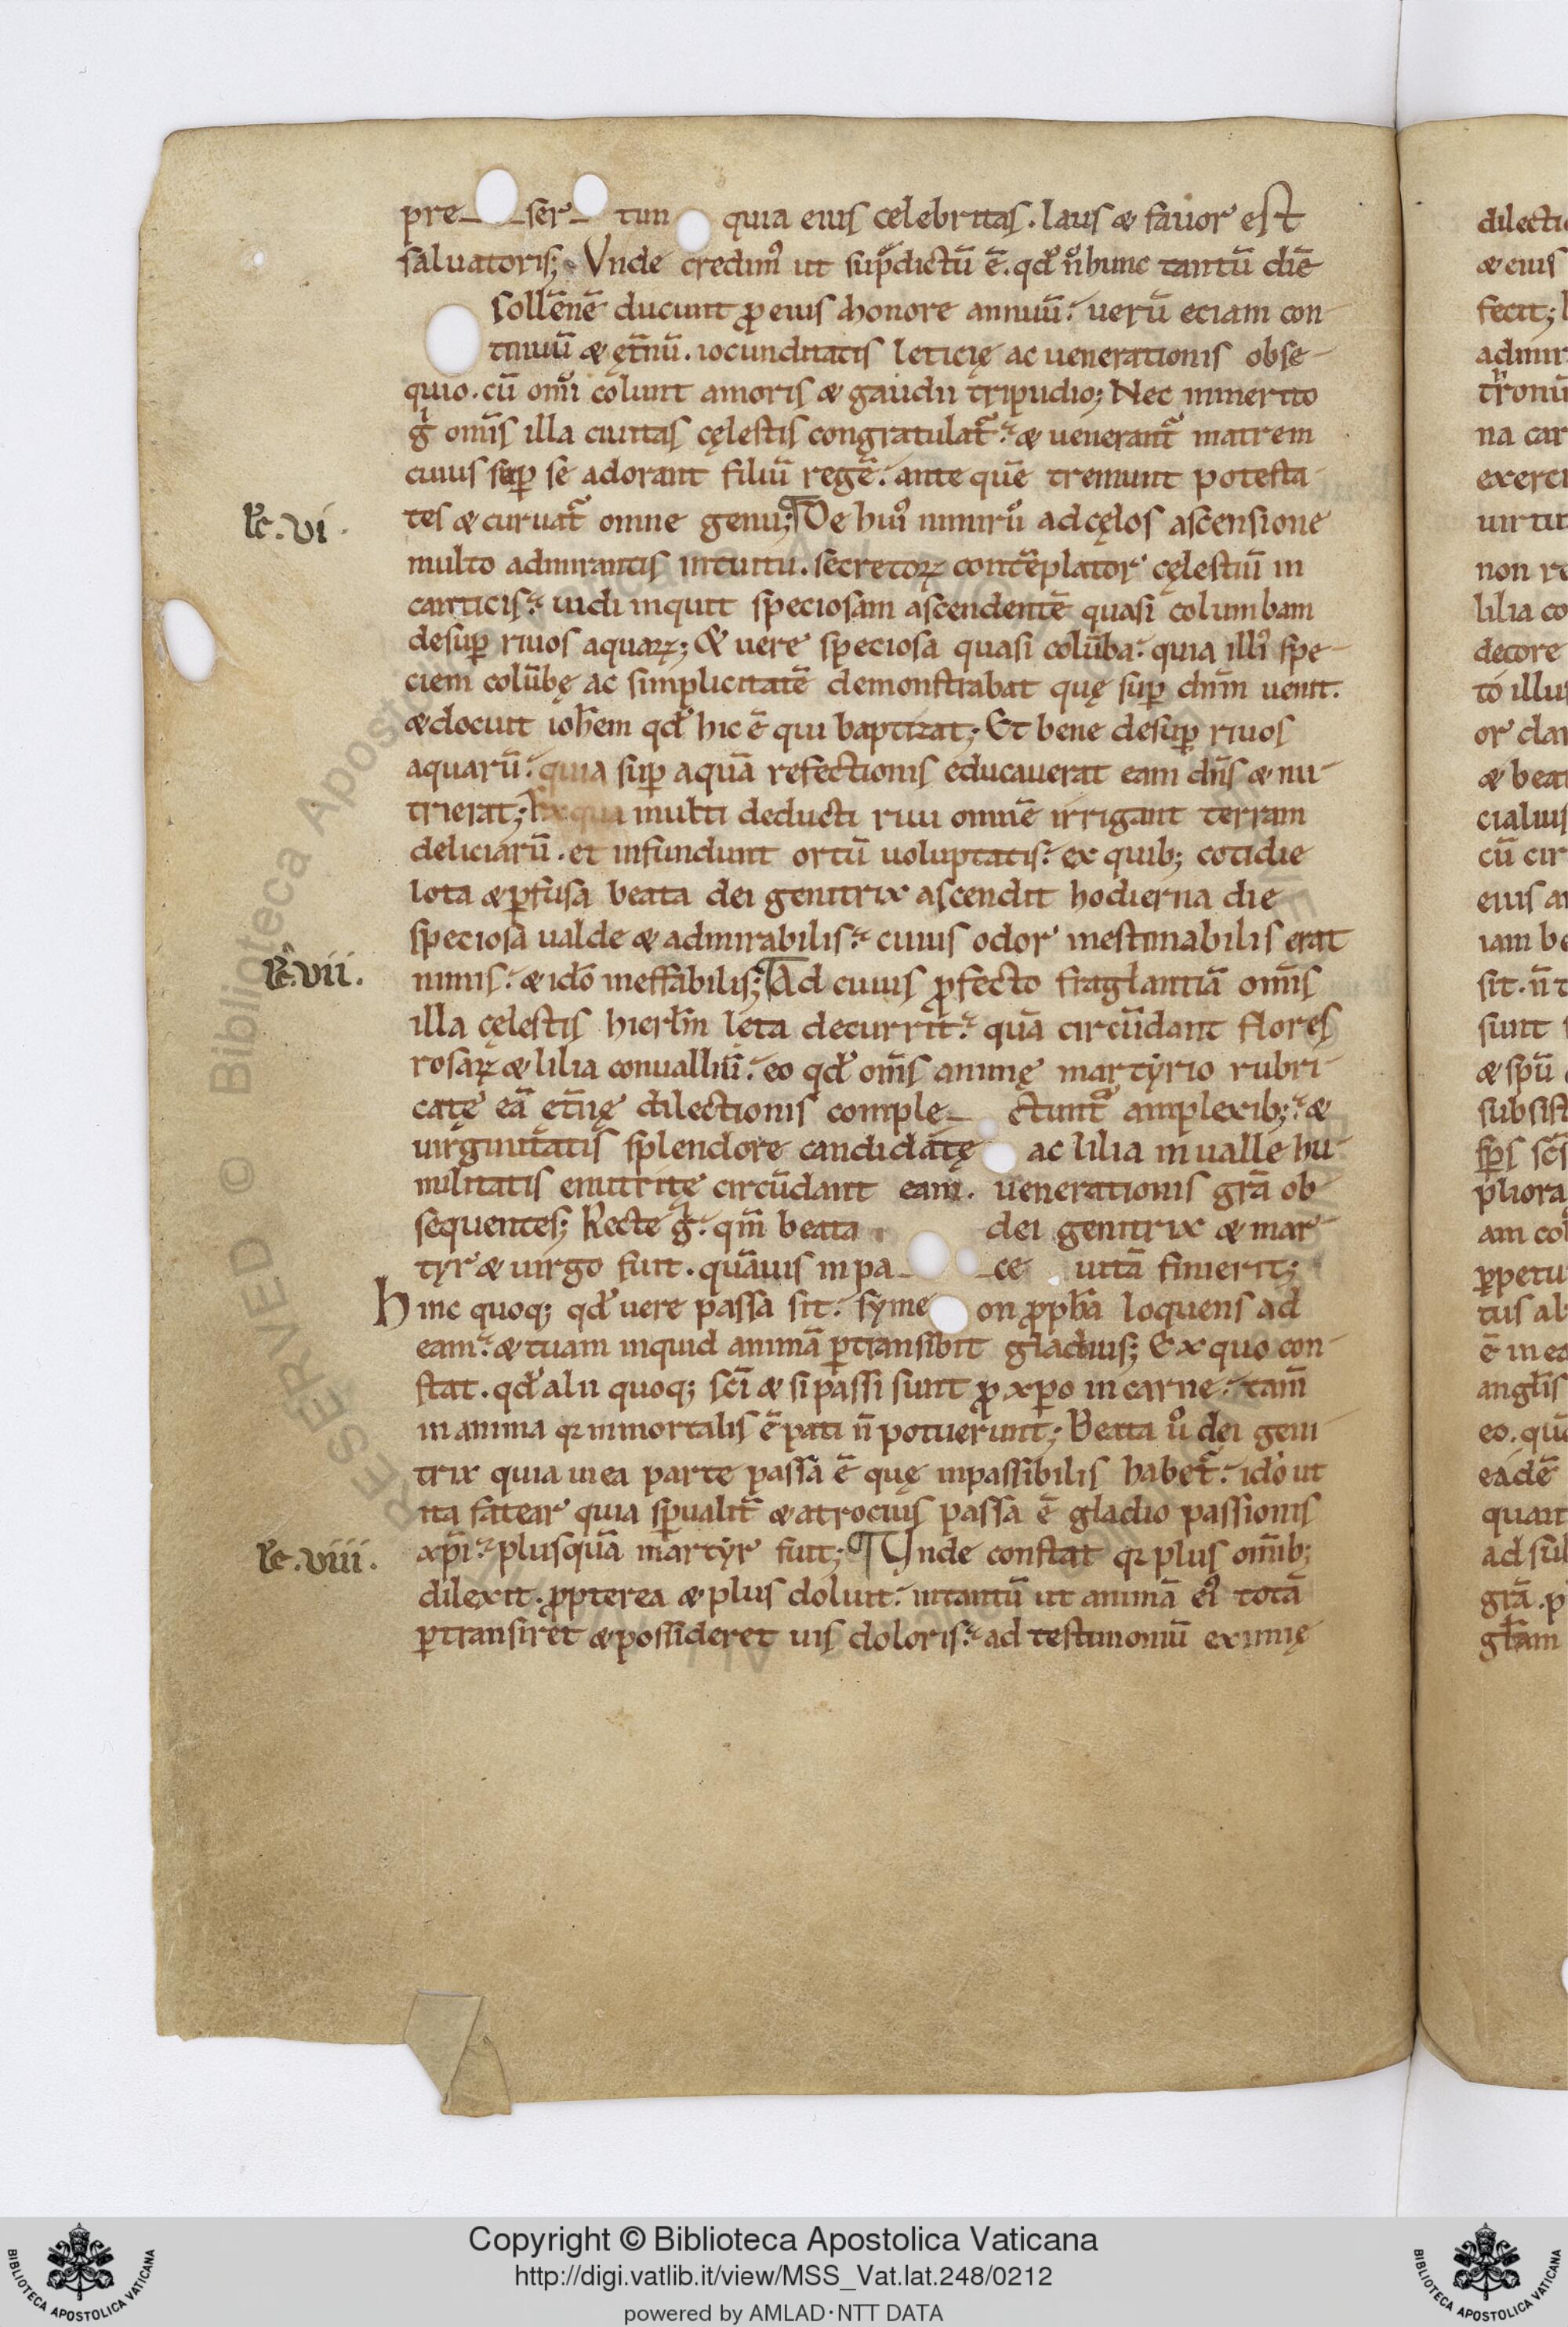 pre- -ser- tim quia eius celebritas. laus & fauor est
saluatoris; Vnde credim᷒ ut sup̄dictū ē. qd̓ n̄ hunc tantū diē
sollēnē ducunt ꝓ eius honore annuū. uerū eciam con-
tinuū & ęt̄nū. iocunditatis leticię ac uenerationis obse-
quio. cū om̄i colunt amoris & gaudii tripudio; Nec inmerito
gͥ om̄s illa ciuitas cęlestis congratulat᷑. & uenerant᷑ matrem
cuius seꝑ se adorant filiū regē. ante quē tremunt potesta-
tes & curuat᷑ omne genu; De hui᷒ nimirū ad cęlos ascensione
multo admirantis intuitu. secretoꝝ contēplator cęlestiū in
canticis. uidi inquit speciosam ascendentē quasi columbam
desuꝑ riuos aquaꝝ; & uere speciosa quasi colūba. quia illi᷒ spe-
ciem colūbę ac simplicitatē demonstrabat quę suꝑ dn̄m uenit.
& docuit ioh̄em qd̓ hic ē qui baptizat; Et bene desuꝑ riuos
aquarū. quia suꝑ aquā refectionis educauerat eam dn̄s & nu-
trierat; Ex qua multi deducti riui omnē irrigant terram
deliciarū. et infundunt ortū uoluptatis. ex quib; cotidie
lota & ꝑfusa beata dei genitrix ascendit hodierna die
speciosa ualde & admirabilis. cuius odor inestimabilis erat
nimis. & idō ineffabilis; Ad cuius ꝓfecto fraglantiā om̄s
illa cęlestis hierl̄m lęta decurrit. quā circūdant flores
rosaꝝ & lilia conualliū. eo qd̓ om̄s animę martyrio rubri-
catę eā ęt̄nę dilectionis comple- ctunt᷑ amplexib;. &
uirginitatis splendore candidatę ac lilia in ualle hu-
militatis enutritę circūdant eam. uenerationis gr̄a ob-
sequentes; Recte gͥ. qm̄ beata dei genitrix & mar-
tyr & uirgo fuit. quāuis in pa- -ce uitā finierit;
hinc quoq; qd̓ uere passa sit. syme on ꝓph̄a loquens ad
eam. & tuam inquid animā ꝑtransibit gladius; Ex quo con-
stat. qd̓ alii quoq; sc̄i & si passi sunt ꝓ xp̄o in carne. tam̄
in anima q̨ inmortalis ē pati n̄ potuerunt; Beata u̓ dei geni-
trix quia in ea parte passa ē quę inpassibilis habet᷑. idō ut
ita fatear quia sp̄ualit̄ & atrocius passa ē gladio passionis
xp̄i. plusquā martyr fuit; Unde constat q̨ plus om̄ib;
dilexit. ꝓpterea & plus doluit. intantū ut animā ei᷒ totā
ꝑtransiret & possideret uis doloris. ad testimoniū eximię
lc̄. vi.
lc̄. vii.
lc̄. viii.
Copyright © Biblioteca Apostolica Vaticana
http://digi.vatlib.it/view/MSS_Vat.lat.248/0212
powered by AMLAD·NTT DATA
BIBLIOTECA APOSTOLICA VATICANA
BIBLIOTECA APOSTOLICA VATICANA